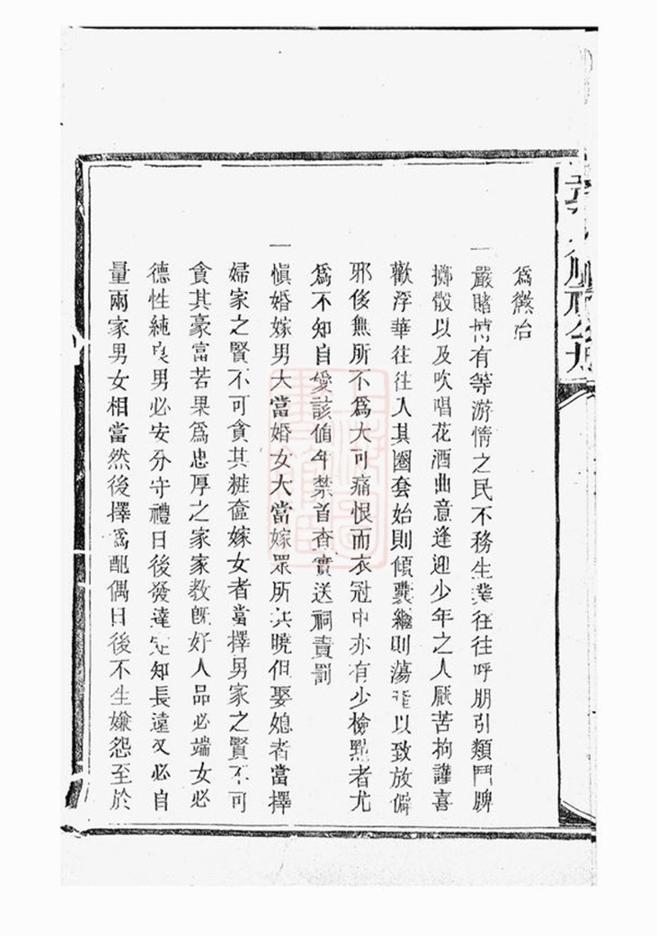 為懲治
一嚴賭博有等游惰之民不務生業往往呼朋引類鬥牌
擲骰以及吹唱花酒曲意逢迎少年之人厭苦拘謹喜
歡浮華往往入其圈套始則傾囊繼則蕩產以致放僻
邪侈無所不為大可痛恨而衣冠中亦有少檢點者尤
為不知自愛該值年禁首查實送祠責罰
一慎婚嫁男大當婚女大當嫁眾所共曉但娶媳者當擇
婦家之賢不可貪其粧奩嫁女者當擇男家之賢不可
貪其豪富若果為忠厚之家家教既好人品必端女必
德性純良男必安分守禮日後發達定知長遠又必自
量兩家男女相當然後擇為配偶日後不生嫌怨至於